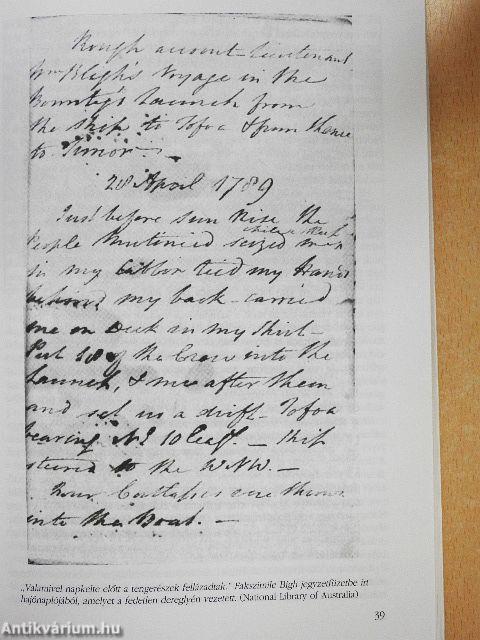 Rough account - Lieutenant
Wm Bligh's Voyage in the
Bounty's Launch from
the Ship to Tofoa & from thence
to Timor -
28 April 1789
Just before sun rise the
People Mutinied seized me
while asleep
in my Cabbin tied my Hands
behind my back - carried
me on Deck in my Shirt -
Put 18 of the Crew into the
Launch, & me after them
and set us a drift - Tofoa
bearing NE 10 Leags. - Ship
steered to the WNW. -
Four Cutlasses were thrown
into the Boat. -
„Valamivel napkelte előtt a tengerészek fellázadtak." Fakszimile Bligh jegyzetfüzetbe írt
hajónaplójából, amelyet a fedetlen dereglyén vezetett. (National Library of Australia)
39
Antikvárium.hu